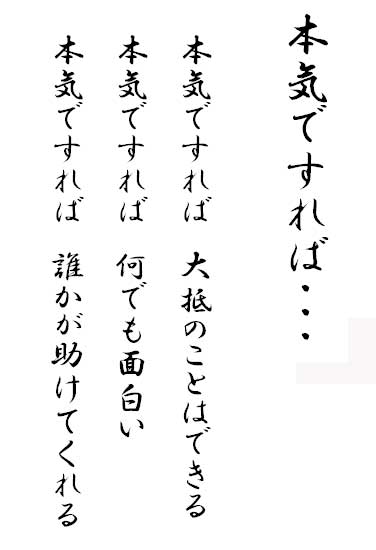 本気ですれば・・・
本気ですれば 大抵のことはできる
本気ですれば 何でも面白い
本気ですれば 誰かが助けてくれる